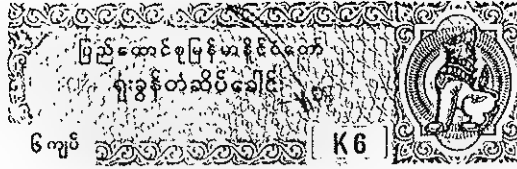 ပြည်ထောင်စုမြန်မာနိုင်ငံတော်
ရုံးခွန်တံဆိပ်ခေါင်း
၆ ကျပ်
K6